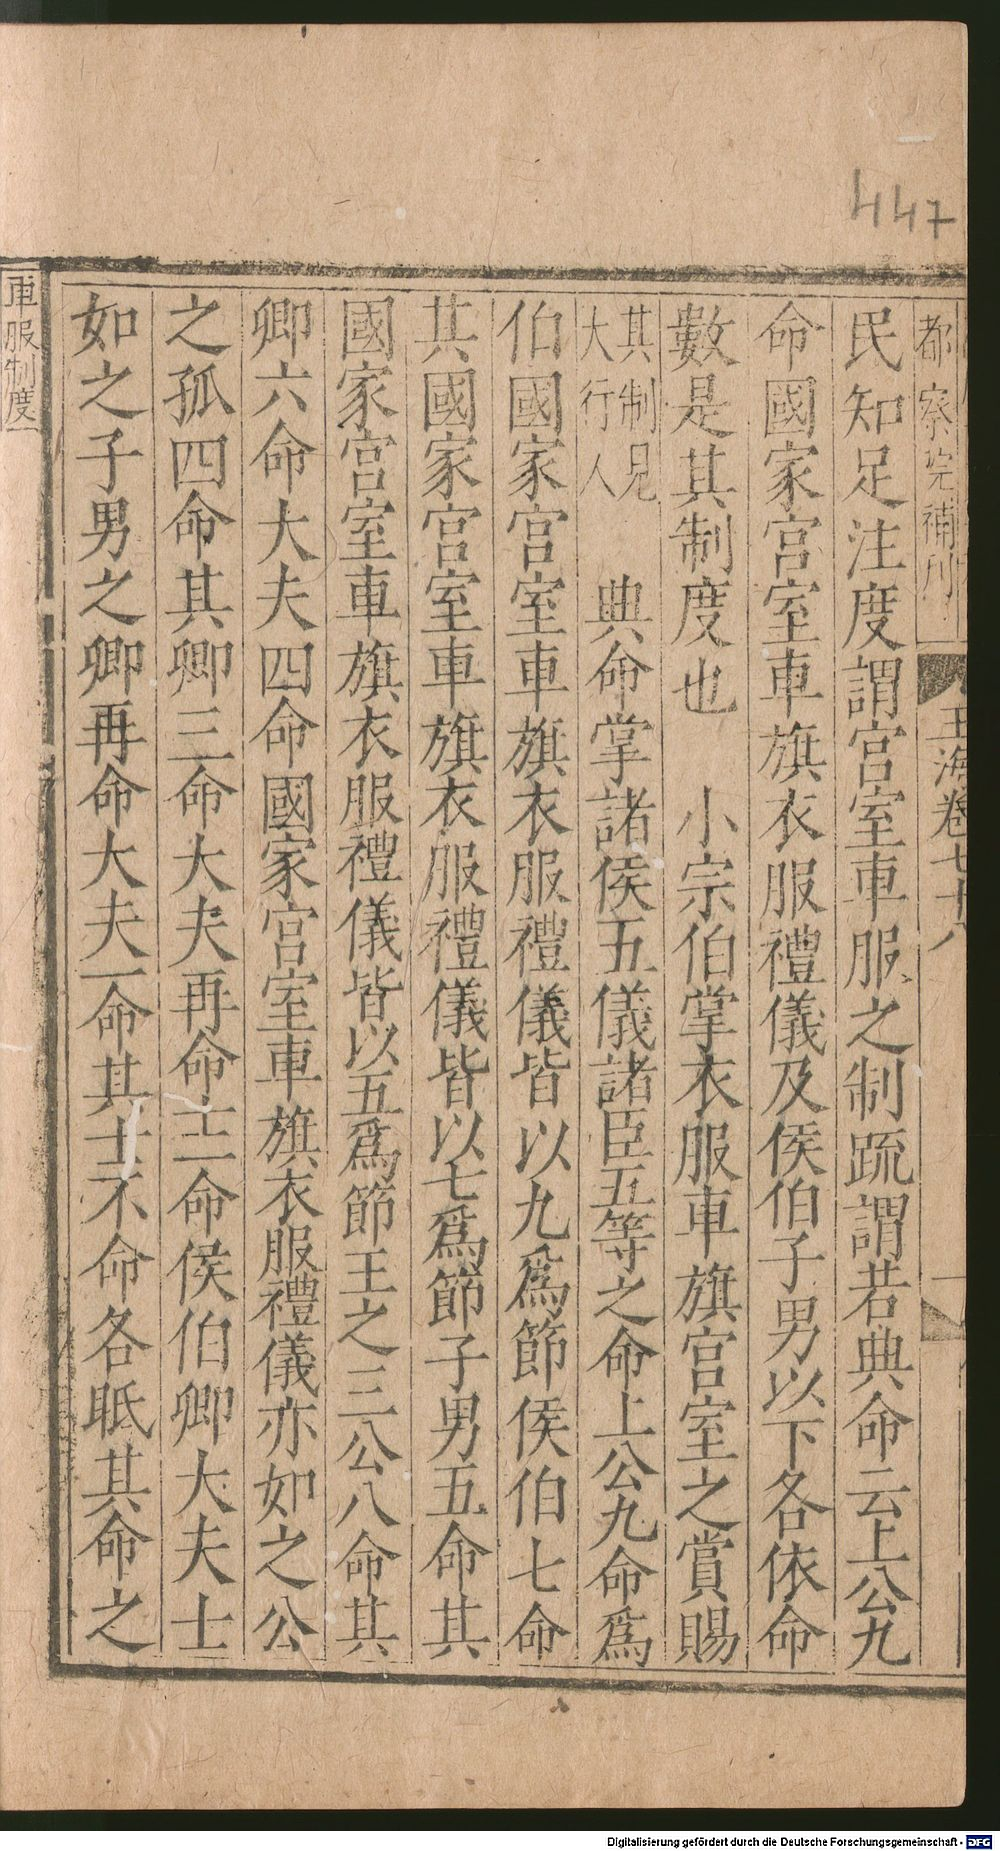 447
都察院補刊
玉海卷七十八
民知足注度謂宮室車服之制疏謂若典命云上公九
命國家宮室車旗衣服禮儀及侯伯子男以下各依命
數是其制度也　小宗伯掌衣服車旗宮室之賞賜
其制見
大行人
典命掌諸侯五儀諸臣五等之命上公九命爲
伯國家宮室車旗衣服禮儀皆以九爲節侯伯七命
其國家宮室車旗衣服禮儀皆以七爲節子男五命其
國家宮室車旗衣服禮儀皆以五爲節王之三公八命其
卿六命大夫四命國家宮室車旗衣服禮儀亦如之公
之孤四命其卿三命大夫再命士一命侯伯卿大夫士
如之子男之卿再命大夫一命其士不命各眡其命之
車服制度
Digitalisierung gefördert durch die Deutsche Forschungsgemeinschaft - DFG